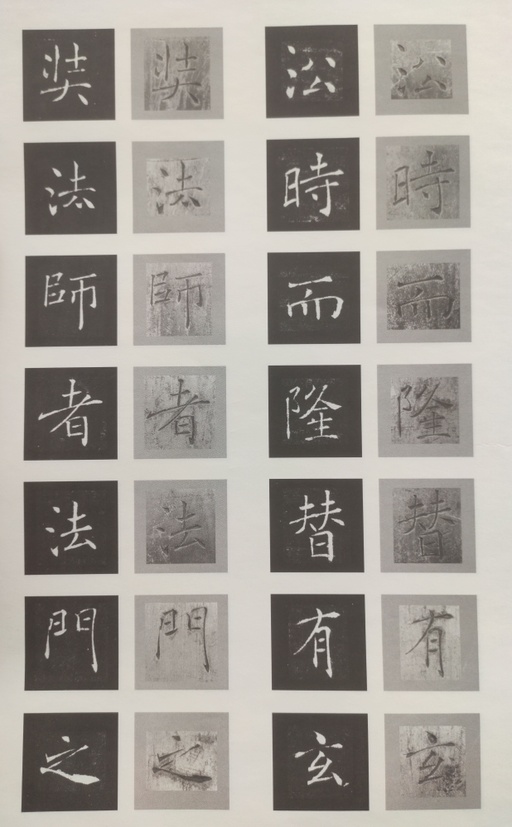 沿時而隆替有玄
沿時而隆替有玄
奘法師者法門之
奘法師者法門之